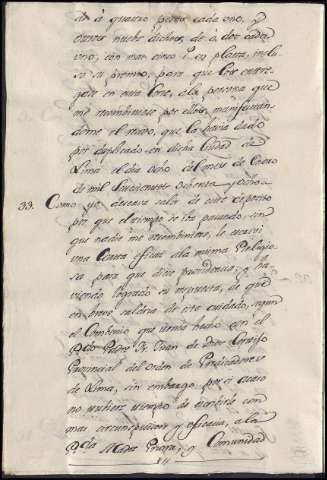 de à quatro pesos cada uno, y
ochos de à dos cada
uno, con mas cinco en plata, inclu
so su premio, para que los entre
gase en esta Corte, á la persona que
me reconviniese por ellos, manifestan
dome el recivo, que la havia dado
por duplicado en dicha Ciudad de
Lima el dia ocho del mes de Enero
de mil Setecientos Ochenta y Ocho.
33. Como yo deseava salir de este deposito
por que el tiempo se iba pasando, sin
que nadie me reconviniese, le escrivi
una Carta oficial á la misma Religio
sa para que diese providencia, y ha
viendo logrado su respuesta, de que
en breve saldria de este cuidado, segun
el Convenio que tenia hecho con el
Pdo Padre Fr. Juan de
Provincial del Orden de Predicadores
de Lima, sin embargo por si acaso
no tuviese tiempo de escribir con
mas circunspeccion y eficacia, a la
Rda Madre Priora, y Comunidad